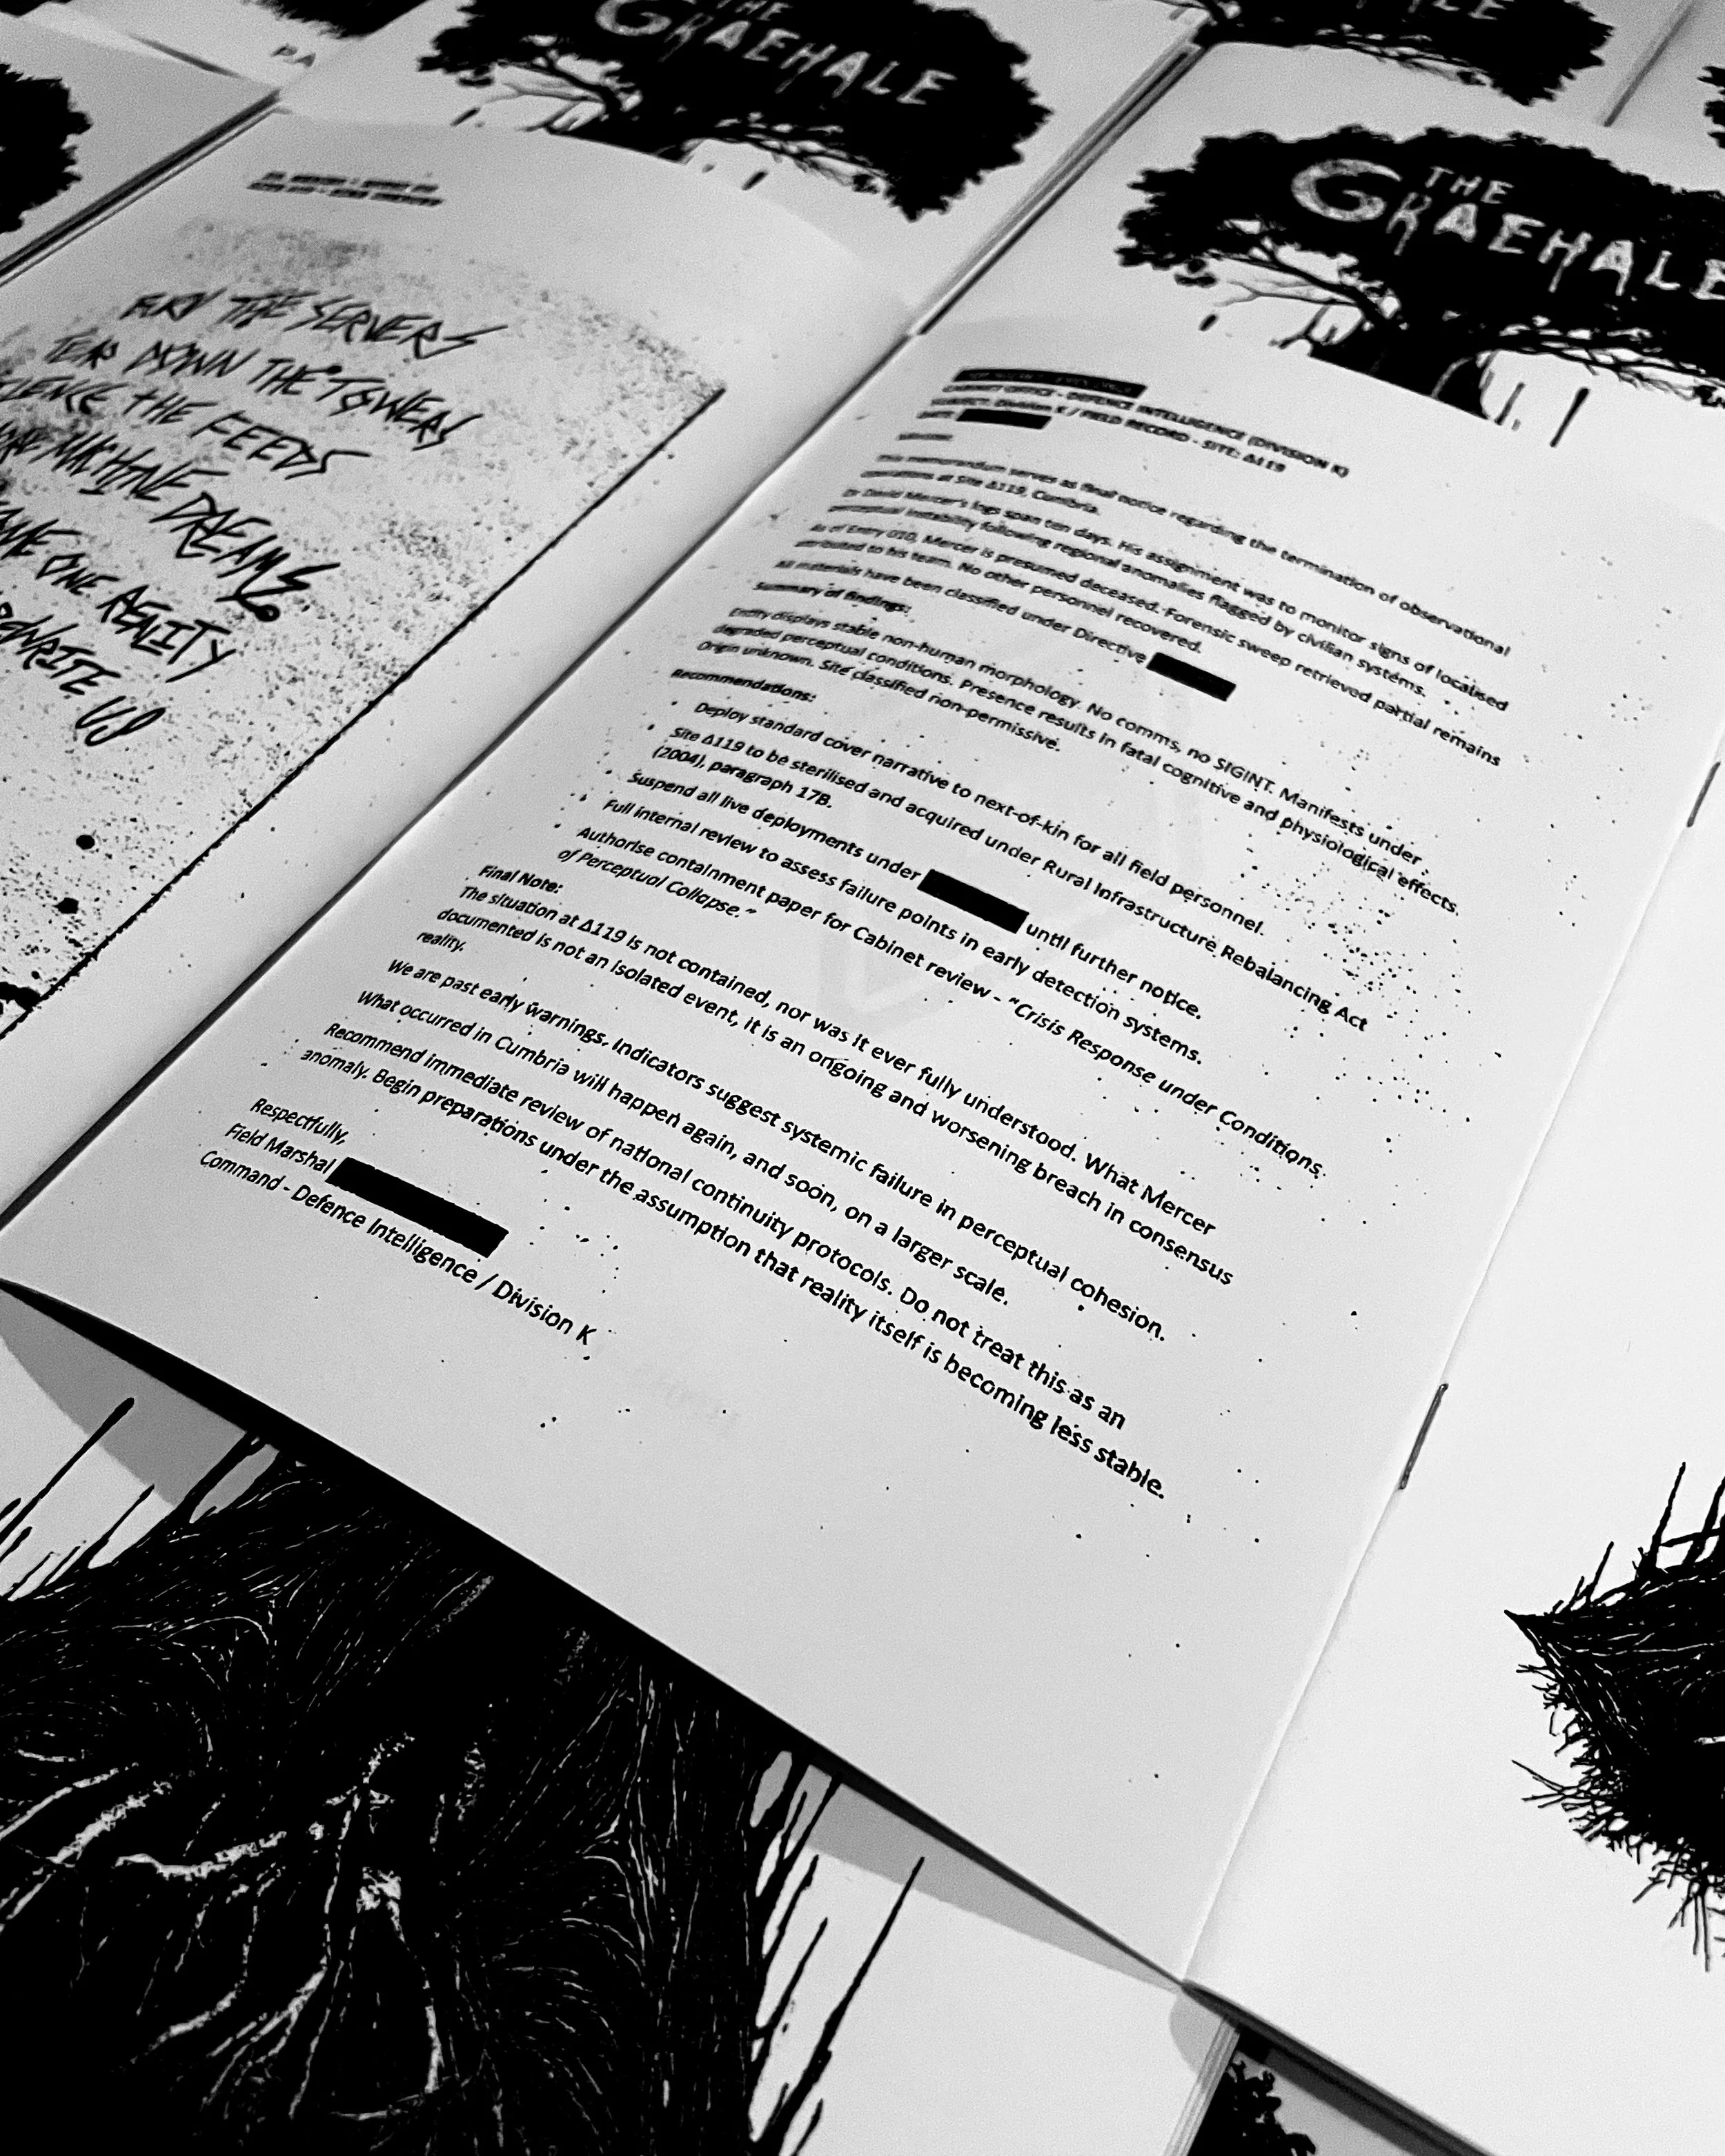 THE
GRAEHALE
THE
GRAEHALE
THE SERVERS
DOWN THE TOWERS
THE FEEDS
MACHINE DREAMS
ONE REALITY
REWRITE US
CABINET OFFICE - DEFENCE INTELLIGENCE (DIVISION K)
SUBJECT: Division K / FIELD RECORD - SITE: Δ119
DATE:
This memorandum serves as final notice regarding the termination of observational
operations at Site Δ119, Cumbria.
Dr David Mercer's logs span ten days. His assignment was to monitor signs of localised
perceptual instability following regional anomalies flagged by civilian systems.
As of Entry 010, Mercer is presumed deceased. Forensic sweep retrieved partial remains
attributed to his team. No other personnel recovered.
All materials have been classified under Directive
Summary of findings:
Entity displays stable non-human morphology. No comms, no SIGINT. Manifests under
degraded perceptual conditions. Presence results in fatal cognitive and physiological effects.
Origin unknown. Site classified non-permissive.
Recommendations:
• Deploy standard cover narrative to next-of-kin for all field personnel.
• Site Δ119 to be sterilised and acquired under Rural Infrastructure Rebalancing Act
(2004), paragraph 17B.
• Suspend all live deployments under until further notice.
• Full internal review to assess failure points in early detection systems.
• Authorise containment paper for Cabinet review - "Crisis Response under Conditions
of Perceptual Collapse."
Final Note:
The situation at Δ119 is not contained, nor was it ever fully understood. What Mercer
documented is not an isolated event, it is an ongoing and worsening breach in consensus
reality.
We are past early warnings. Indicators suggest systemic failure in perceptual cohesion.
What occurred in Cumbria will happen again, and soon, on a larger scale.
Recommend immediate review of national continuity protocols. Do not treat this as an
anomaly. Begin preparations under the assumption that reality itself is becoming less stable.
Respectfully,
Field Marshal
Command - Defence Intelligence / Division K